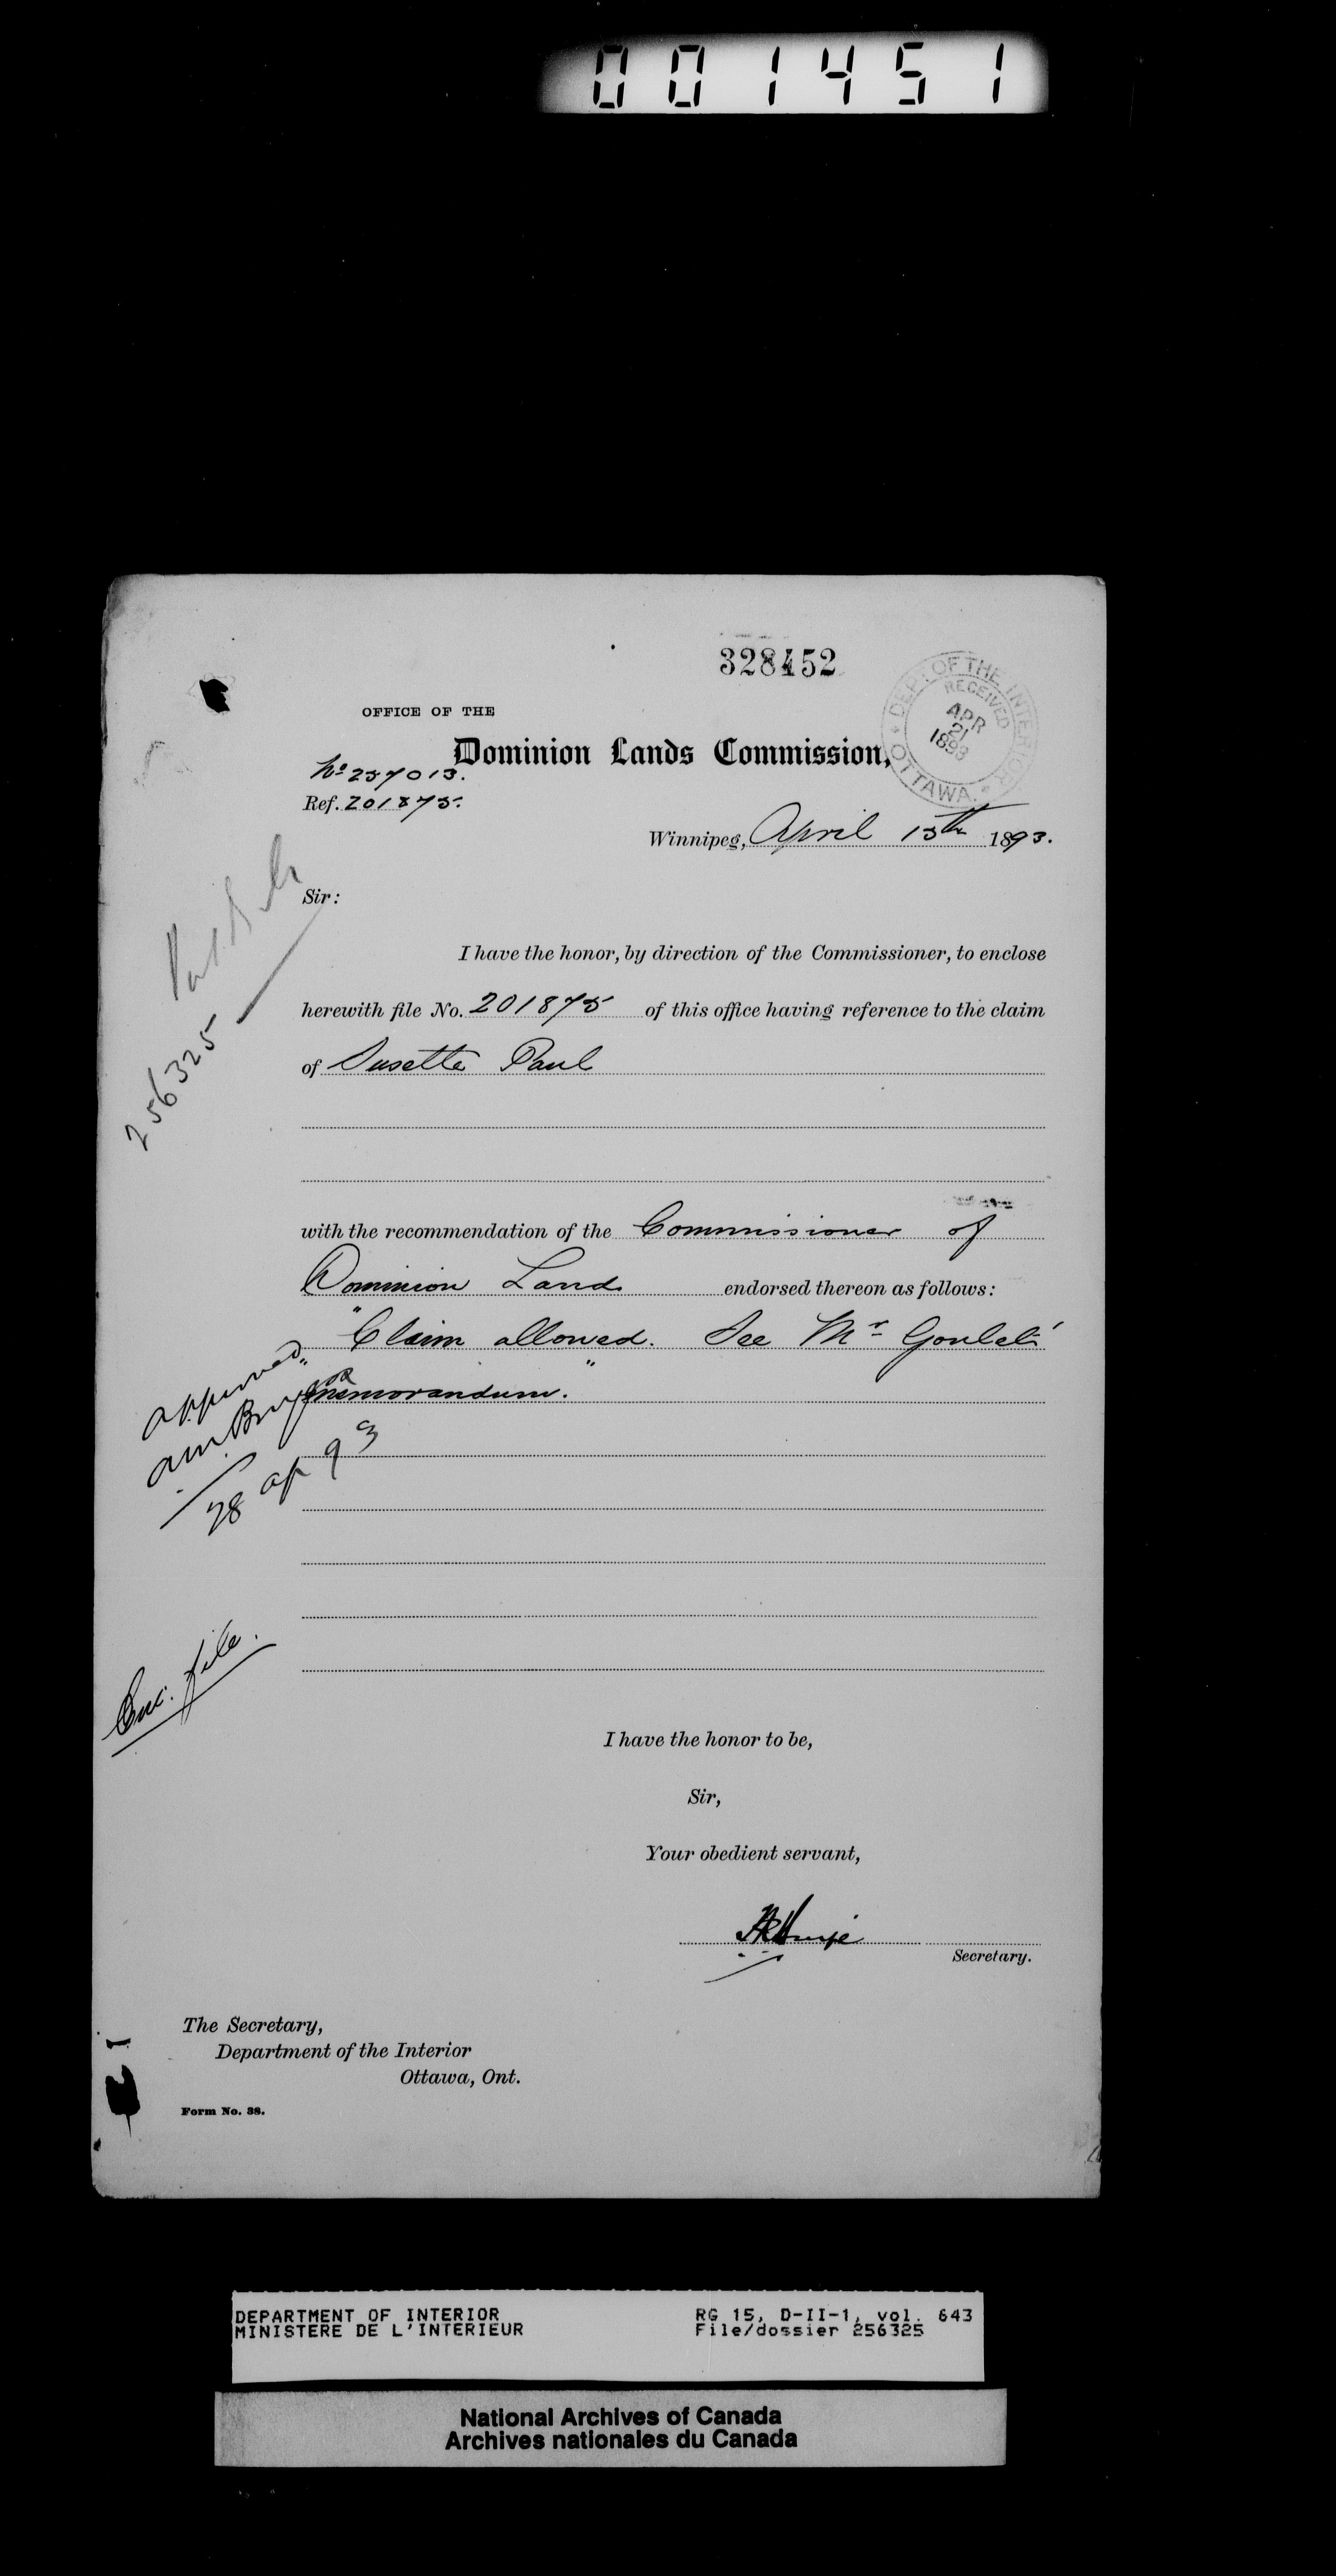 001451
328452
DEPT OF THE INTERIOR
RECEIVED
APR
21
1893
OTTAWA
OFFICE OF THE
Dominion Lands Commission,
No 237013.
Ref. 201875.
Winnipeg, April 13th 1893.
Sir:
I have the honor, by direction of the Commissioner, to enclose
herewith file No. 201875 of this office having reference to the claim
of Susette Paul
256325
with the recommendation of the Commissioner of
Dominion Lands endorsed thereon as follows:
"Claim allowed. See Mr Goulet's
memorandum."
approved
28 ap 93
Enc. file.
I have the honor to be,
Sir,
Your obedient servant,
Secretary.
The Secretary,
Department of the Interior
Ottawa, Ont.
Form No. 38.
DEPARTMENT OF INTERIOR RG 15, D-II-1, vol. 643
MINISTERE DE L'INTERIEUR File/dossier 256325
National Archives of Canada
Archives nationales du Canada